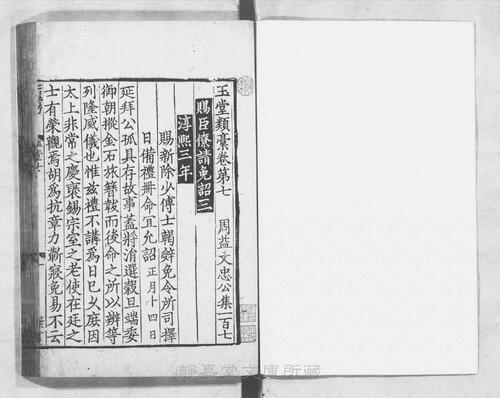 玉堂類藁卷第七　周益文忠公集一百七
賜臣僚請免詔三
淳熙三年
賜新除少傅士輵辤免令所司擇
日備禮冊命宜允詔 正月十四日
延拜公孤具存故事蓋將涓選穀旦端委
御朝摐金石旅簪韍而後命之所以辨等
列隆威儀也惟兹禮不講爲日已久庶因
太上非常之慶襃錫宗室之老使在廷之
士有榮觀焉胡爲抗章力靳褻免易不云
靜嘉堂文庫所蔵